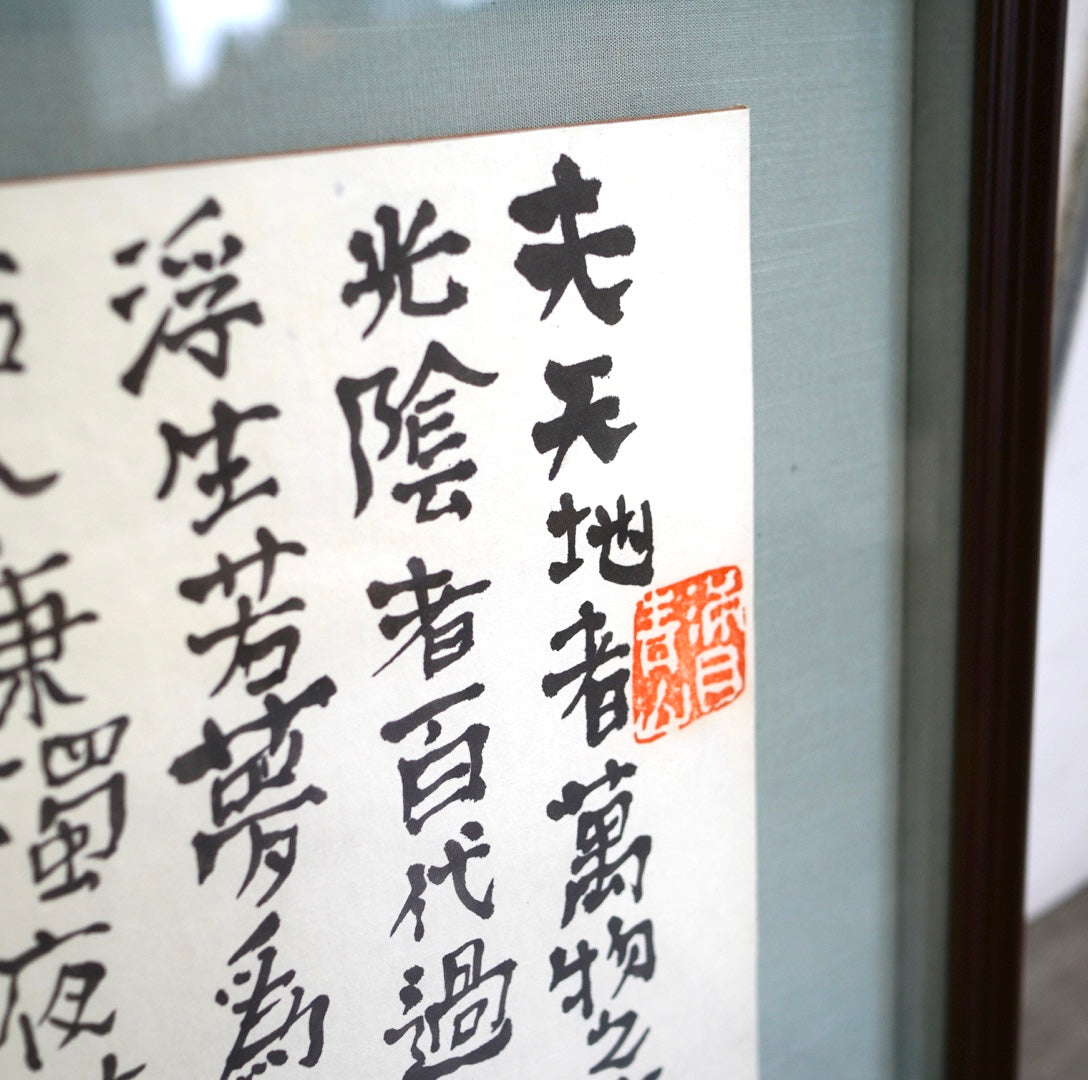 夫天地者萬物之
光陰者百代過
浮生若夢爲
古人秉燭夜